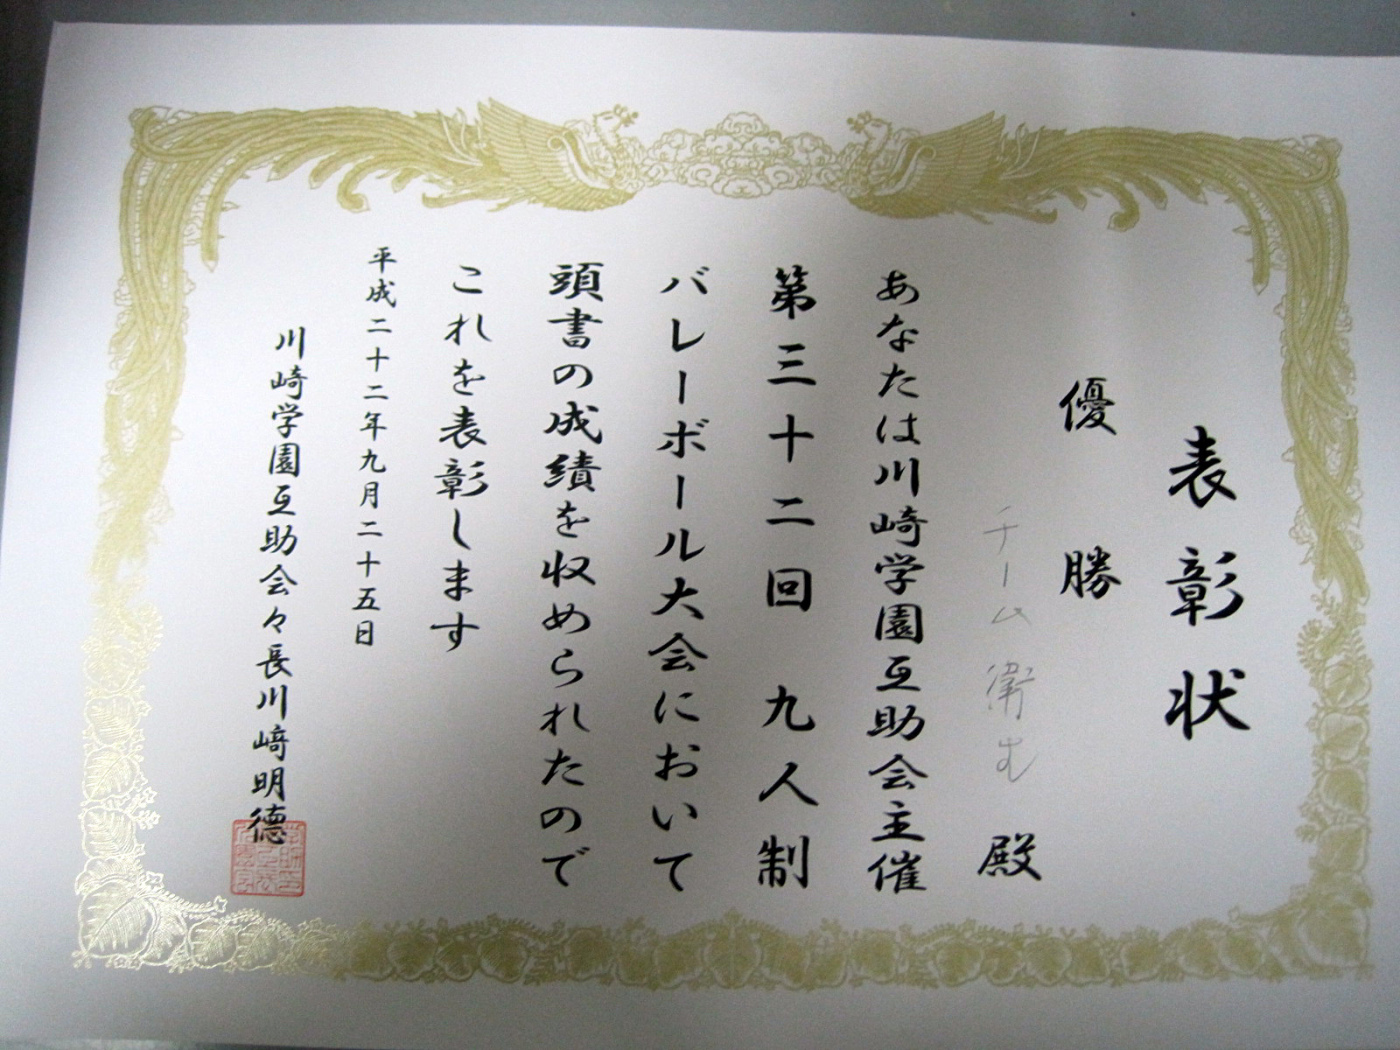 表彰状
優勝
チーム 衛む 殿
あなたは川崎学園互助会主催
第三十二回 九人制
バレーボール大会において
頭書の成績を収められたので
これを表彰します
平成二十二年九月二十五日
川崎学園互助会々長川﨑明德